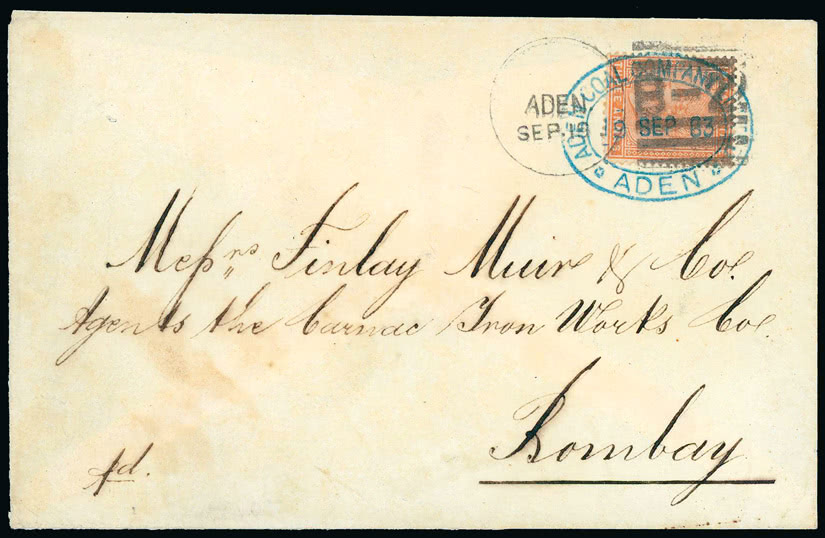 ADEN
SEP. 19
ADEN COAL COMPANY L
19 SEP 83
ADEN
Messrs Finlay Muir & Co.
Agents the Carnac Iron Works Co.
Bombay
Ad.